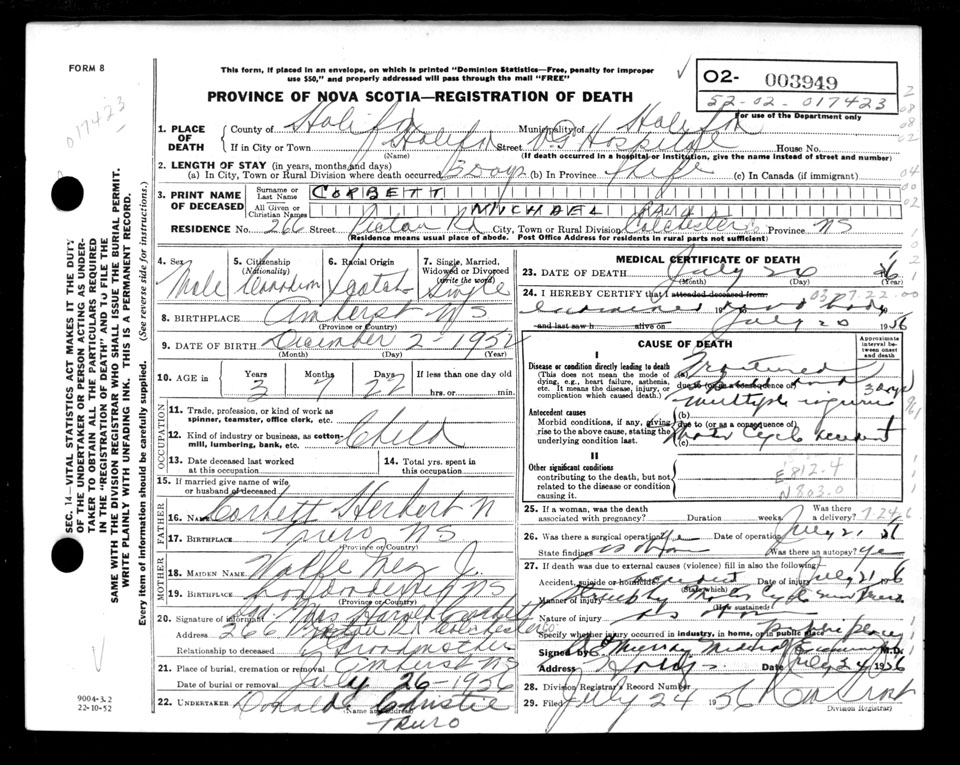 FORM 8
017423
This form, if placed in an envelope, on which is printed "Dominion Statistics—Free, penalty for improper
use $50," and properly addressed will pass through the mail "FREE"
PROVINCE OF NOVA SCOTIA—REGISTRATION OF DEATH
O2- 003949
52-02-017423
For use of the Department only
1. PLACE OF DEATH
County of Halifax Municipality of Halifax
If in City or Town Halifax Street VG Hospital House No.
(Name) (If death occurred in a hospital or institution, give the name instead of street and number)
2. LENGTH OF STAY (in years, months and days)
(a) In City, Town or Rural Division where death occurred 3 Days (b) In Province Life (c) In Canada (if immigrant)
3. PRINT NAME OF DECEASED
Surname or Last Name CORBETT
All Given or Christian Names MICHAEL PAUL
RESIDENCE No. 266 Street Pictou Rd City, Town or Rural Division Colchester Province NS
(Residence means usual place of abode. Post Office Address for residents in rural parts not sufficient)
4. Sex Male
5. Citizenship (Nationality) Canadian
6. Racial Origin
7. Single, Married, Widowed or Divorced (write the word) Single
8. BIRTHPLACE Amherst NS
(Province or Country)
9. DATE OF BIRTH December 2 - 1952
(Month) (Day) (Year)
10. AGE in Years 3 Months 7 Days 22 If less than one day old
hrs. or min.
OCCUPATION
11. Trade, profession, or kind of work as spinner, teamster, office clerk, etc.
12. Kind of industry or business, as cotton-mill, lumbering, bank, etc.
Child
13. Date deceased last worked at this occupation
14. Total yrs. spent in this occupation
15. If married give name of wife or husband of deceased
FATHER
16. NAME Corbett Herbert N
17. BIRTHPLACE Truro NS
(Province or Country)
MOTHER
18. MAIDEN NAME Wolfe Inez J.
19. BIRTHPLACE Londonderry NS
(Province or Country)
20. Signature of informant Mrs Harold Corbett
Address 266 Pictou Rd Colchester Co
Relationship to deceased Grandmother
21. Place of burial, cremation or removal Amherst NS
Date of burial or removal July 26-1956
22. UNDERTAKER Donald Christie
(Name and Address)
Truro
MEDICAL CERTIFICATE OF DEATH
23. DATE OF DEATH July 24 56
(Month) (Day) (Year)
24. I HEREBY CERTIFY that I attended deceased from:
examined 19 body
and last saw h alive on July 1956
CAUSE OF DEATH
Approximate interval between onset and death
I
Disease or condition directly leading to death
(This does not mean the mode of dying, e.g., heart failure, asthenia, etc. It means the disease, injury, or complication which caused death.)
(a) Fractured
due to (or as a consequence of)
multiple injuries
3 Days
Antecedent causes
Morbid conditions, if any, giving rise to the above cause, stating the underlying condition last.
(b)
due to (or as a consequence of)
(c) Motor Cycle accident
II
Other significant conditions contributing to the death, but not related to the disease or condition causing it.
E 812.4
N 803.0
25. If a woman, was the death associated with pregnancy? Duration weeks Was there a delivery?
26. Was there a surgical operation? Yes Date of operation July 21, 56
State findings Was there an autopsy? Yes
27. If death was due to external causes (violence) fill in also the following:
Accident, suicide or homicide? Accident Date of injury July 21 1956
(State which)
Manner of injury Struck by Motor Cycle
(How sustained)
Nature of injury
Specify whether injury occurred in industry, in home, or in public place Public place
Signed by Murray M.D.
Address Date July 24 1956
28. Division Registrar's Record Number
29. Filed July 24 1956
Division Registrar
SEC. 14—VITAL STATISTICS ACT MAKES IT THE DUTY
OF THE UNDERTAKER OR PERSON ACTING AS UNDER-
TAKER TO OBTAIN ALL THE PARTICULARS REQUIRED
IN THE "REGISTRATION OF DEATH" AND TO FILE THE
SAME WITH THE DIVISION REGISTRAR WHO SHALL ISSUE THE BURIAL PERMIT.
WRITE PLAINLY WITH UNFADING INK. THIS IS A PERMANENT RECORD.
Every item of information should be carefully supplied. (See reverse side for instructions.)
9004-3.2
22-10-52